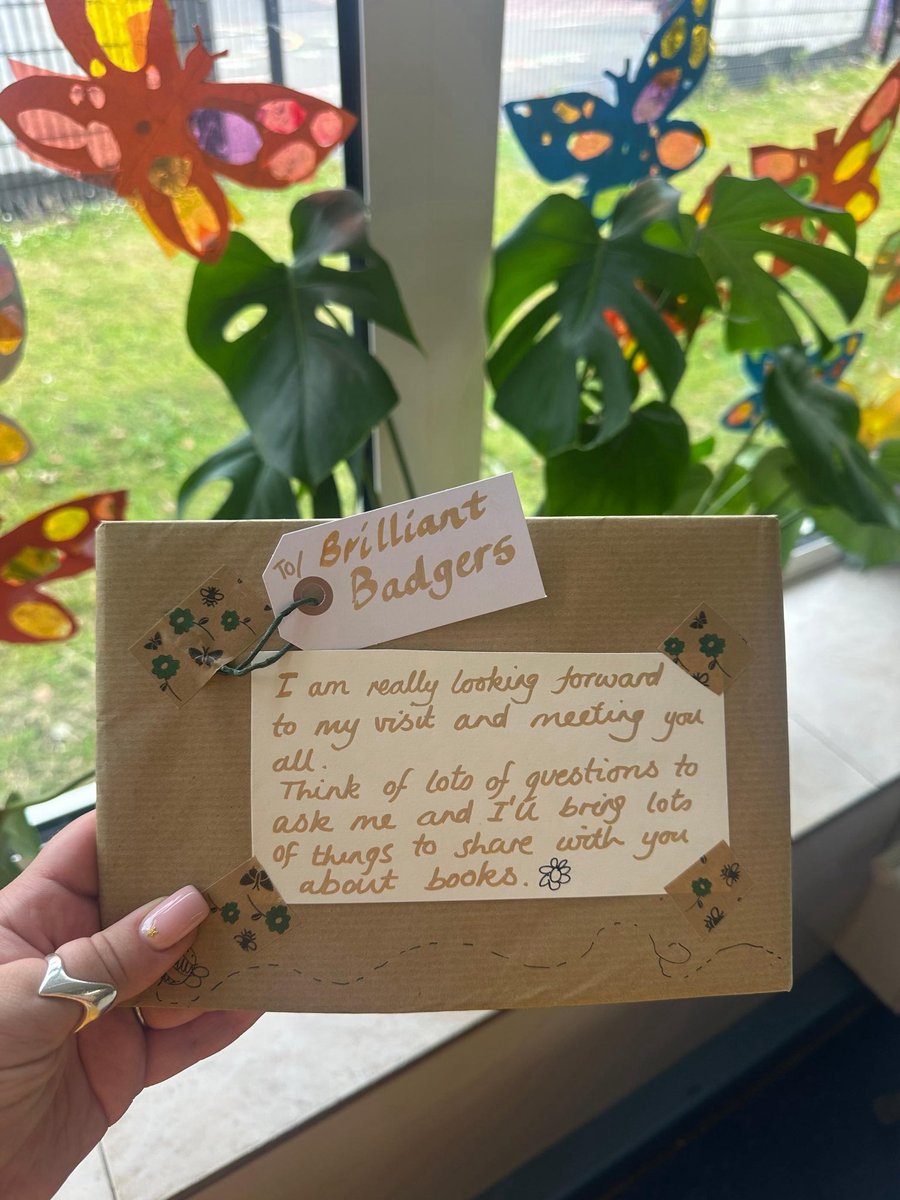 To/ Brilliant
Badgers
I am really looking forward
to my visit and meeting you
all.
Think of lots of questions to
ask me and I'll bring lots
of things to share with you
about books.